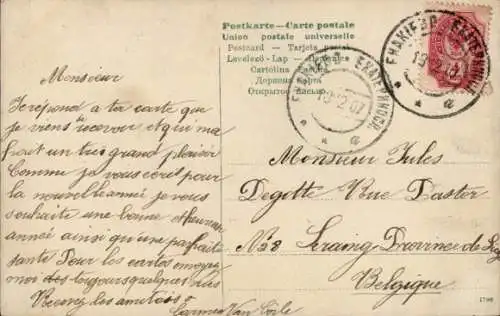 Postkarte – Carte postale
Union postale universelle
Postcard – Tarjeta postal
Levelező-Lap –
Cartolina
Дописна
Открытое письмо.
ЕНАКІЕВО ЕКАТЕРИНОСЛ.
13 2 07
а
ЕНАКІЕВО ЕКАТЕРИНОСЛ.
13 2 07
а
Monsieur
Je repond a ta carte que
je viens de recevoir et qui ma
frait un tres grand plaisir
Comme je vous écret pour
la nouvelle année je vous
souhaite une bonne et heureuse
année ainsi qu'une parfaite
santé Pour les cartes envoyez
moi des toujours quelques
Recevez les amitiés
Carmen Van
Monsieur Jules
Degotte Rue Pastor
No 8 Seraing Province de
Belgique